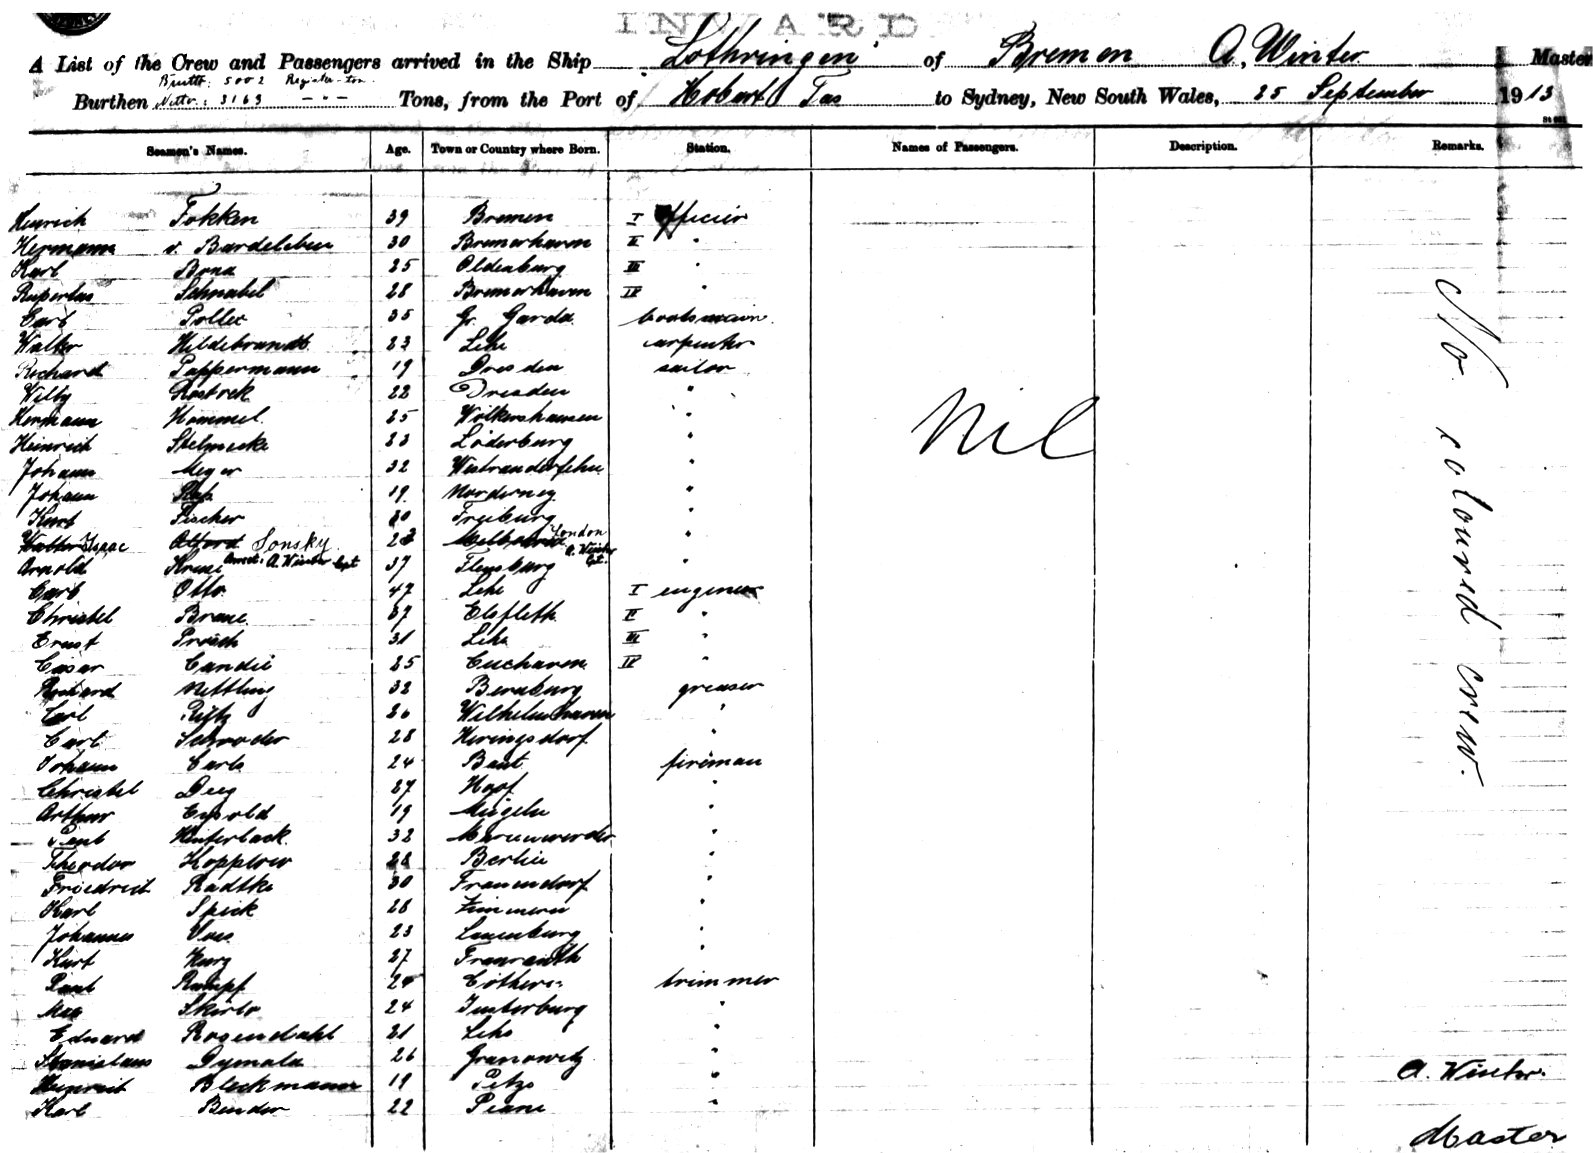 INWARD
A List of the Crew and Passengers arrived in the Ship "Lothringen" of Bremen A. Winter Master
Brutto: 5002 Register ton
Burthen Netto: 3169 - " - Tons, from the Port of Hobart Tas to Sydney, New South Wales, 25 September 1913
Seamen's Names. Age. Town or Country where Born. Station. Names of Passengers. Description. Remarks.
Hinrich Fokken 39 Bremen I officier
Hermann v. Bardeleben 30 Bremerhaven II "
Karl Bona 25 Oldenburg III "
Rupertus Schnabel 28 Bremerhaven IV "
Carl Poller 35 Gr. Garda boatsmann
Walter Hildebrandt 23 Lehe carpenter
Richard Pappermann 19 Dresden sailor
Willy Rostock 22 Dresden "
Hermann Hommel 25 Völkershausen "
Heinrich Stelmecke 23 Löderburg "
Johann Meyer 32 Westrauderfehn "
Johann 19 Norderney "
Kurt Fischer 20 Freiburg "
Walter Isaac Alford Sonsky 23 Melbourne London "
Arnold Kruse Amet: A. Winter Cpt 37 Flensburg A. Winter Cpt. "
Carl Otto 47 Lehe I engineer
Christel Brane 37 Elsfleth II "
Ernst Prosch 31 Lehe III "
Cäsar Candié 25 Cuchaven IV "
Richard Nettling 32 Bernburg greaser
Carl 26 Wilhelmshaven "
Carl Schroder 28 Heringsdorf "
Johann Carls 24 Bant fireman
Christel Deeg 27 Hoof "
Arthur Eysold 19 Mügeln "
Paul Hinterlack 32 Marienwerder "
Theodor Kopplow 28 Berlin "
Friedrich Radtke 30 Frauendorf "
Karl Spick 28 Zimmern "
Johannes Voss 23 Lauenburg "
Kurt Kurz 27 Frauraath "
Paul Rumpf 24 Cöthen trimmer
Max Skirlo 24 Insterburg "
Eduard Rosendahl 21 Lehe "
Stanislaus Dymala 26 Granowitz "
Heinrich Bleckmann 19 Petze "
Karl Binder 22 Peine "
Nil
No coloured crew.
A. Winter.
Master